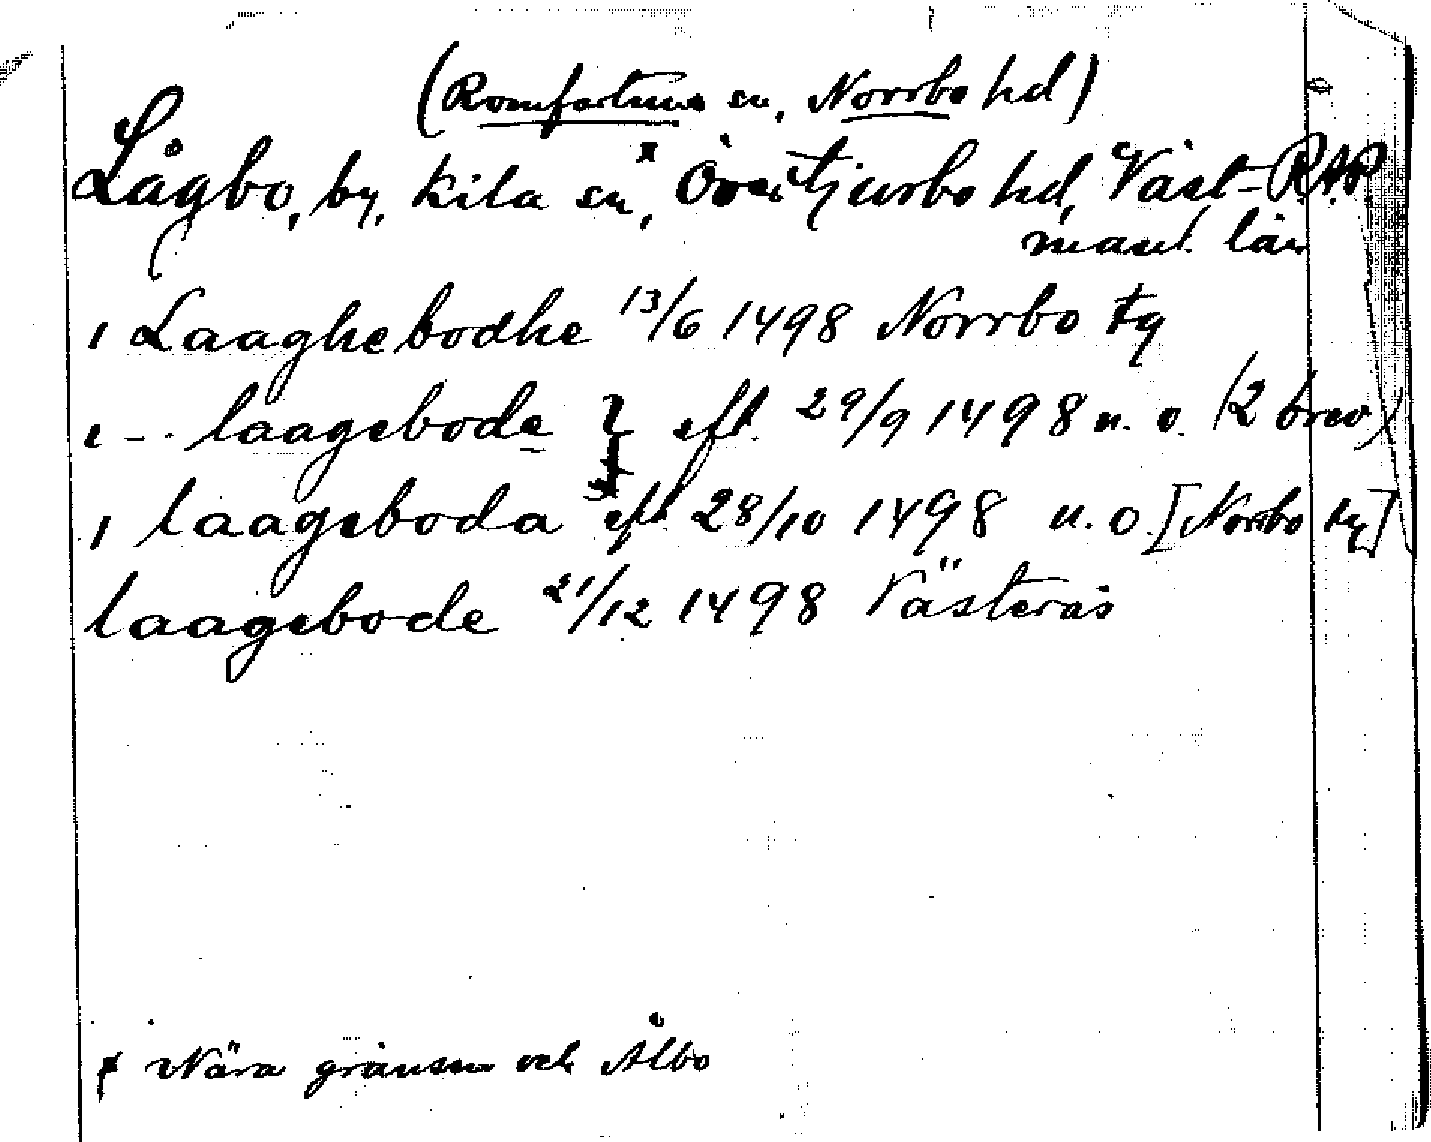 (Romfartuna sn, Norrbo hd)
Lågbo, by, Kila sn, Övertjurbo hd, Väst- RAP
manl. län
i Laaghebodhe 13/6 1498 Norrbo tg
i - - laagebode eft. 29/9 1498 u. o. (2 brev)
i laageboda eft 28/10 1498 u. o. [Norrbo tg]
laagebode 21/12 1498 Västerås
x Nära gränsen och Ålbo